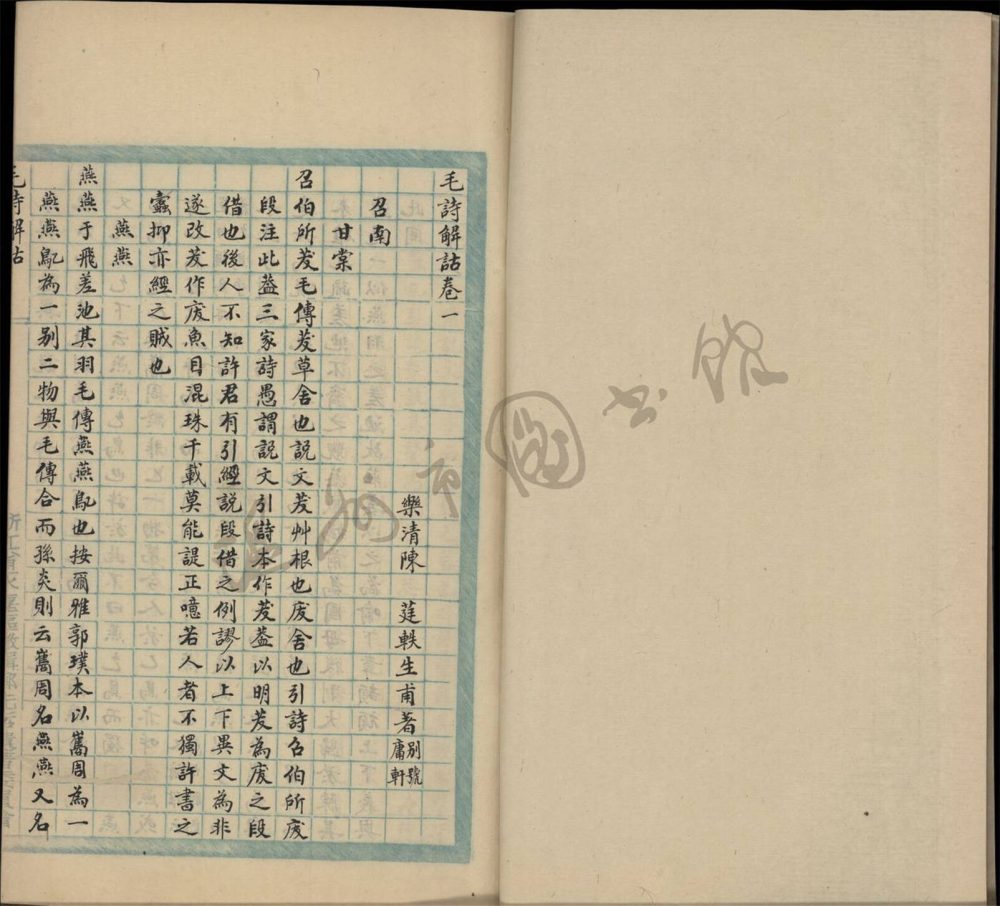 毛詩解詁卷一
樂清陳 莛軼生甫著別號庸軒
召南
甘棠
召伯所茇毛傳茇草舍也説文茇艸根也废舍也引詩召伯所废
段注此葢三家詩愚謂説文引詩本作茇葢以明茇為废之段
借也後人不知許君有引經説段借之例謬以上下異文為非
遂改茇作废魚目混珠千載莫能諟正噫若人者不獨許書之
蠹抑亦經之賊也
燕燕
燕燕于飛差池其羽毛傳燕燕鳦也按爾雅郭璞本以巂周為一
燕燕鳦為一别二物與毛傳合而孫炎則云巂周名燕燕又名
毛詩解詁
圖書館